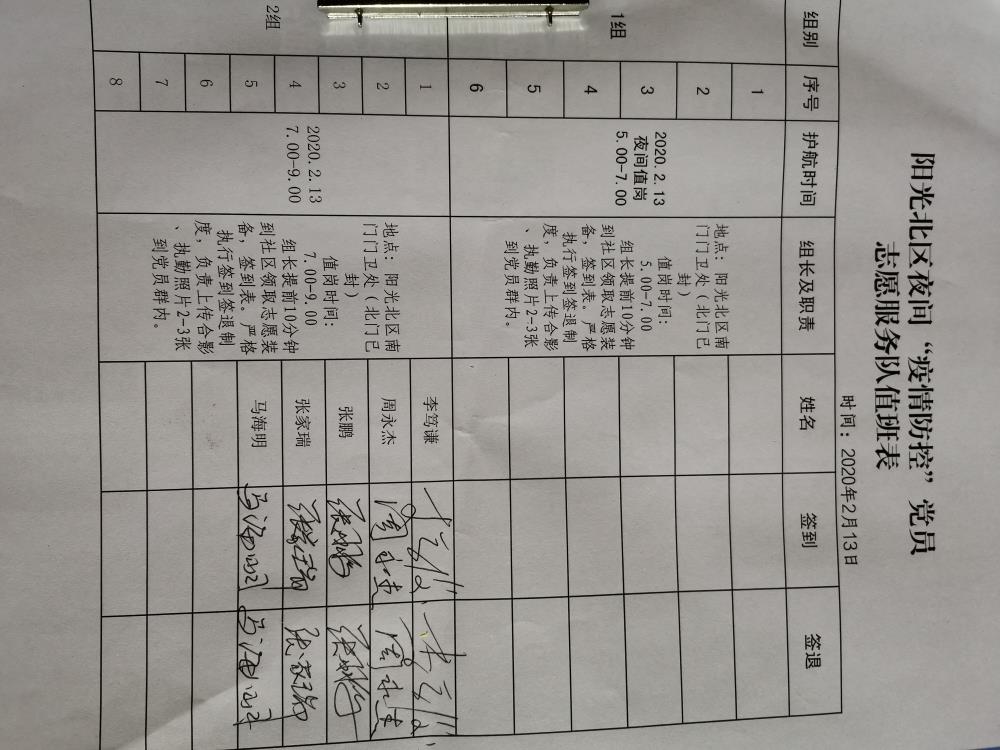 阳光北区夜间“疫情防控”党员
志愿服务队值班表
时间：2020年2月13日
组别 序号 护航时间 组长及职责 姓名 签到 签退
1组
1
2
3
4
5
6
2020.2.13
夜间值岗
5.00-7.00
地点：阳光北区南
门门卫处（北门已
封）
值岗时间：
5.00-7.00
组长提前10分钟
到社区领取志愿装
备，签到表。严格
执行签到签退制
度，负责上传合影
、执勤照片2-3张
到党员群内。
2组
2020.2.13
7.00-9.00
地点：阳光北区南
门门卫处（北门已
封）
值岗时间：
7.00-9.00
组长提前10分钟
到社区领取志愿装
备，签到表。严格
执行签到签退制
度，负责上传合影
、执勤照片2-3张
到党员群内。
1 李笃谦
2 周永杰 周永杰 周永杰
3 张鹏 张鹏 张鹏
4 张家瑞 张家瑞 张家瑞
5 马海明 马海明 马海明
6
7
8